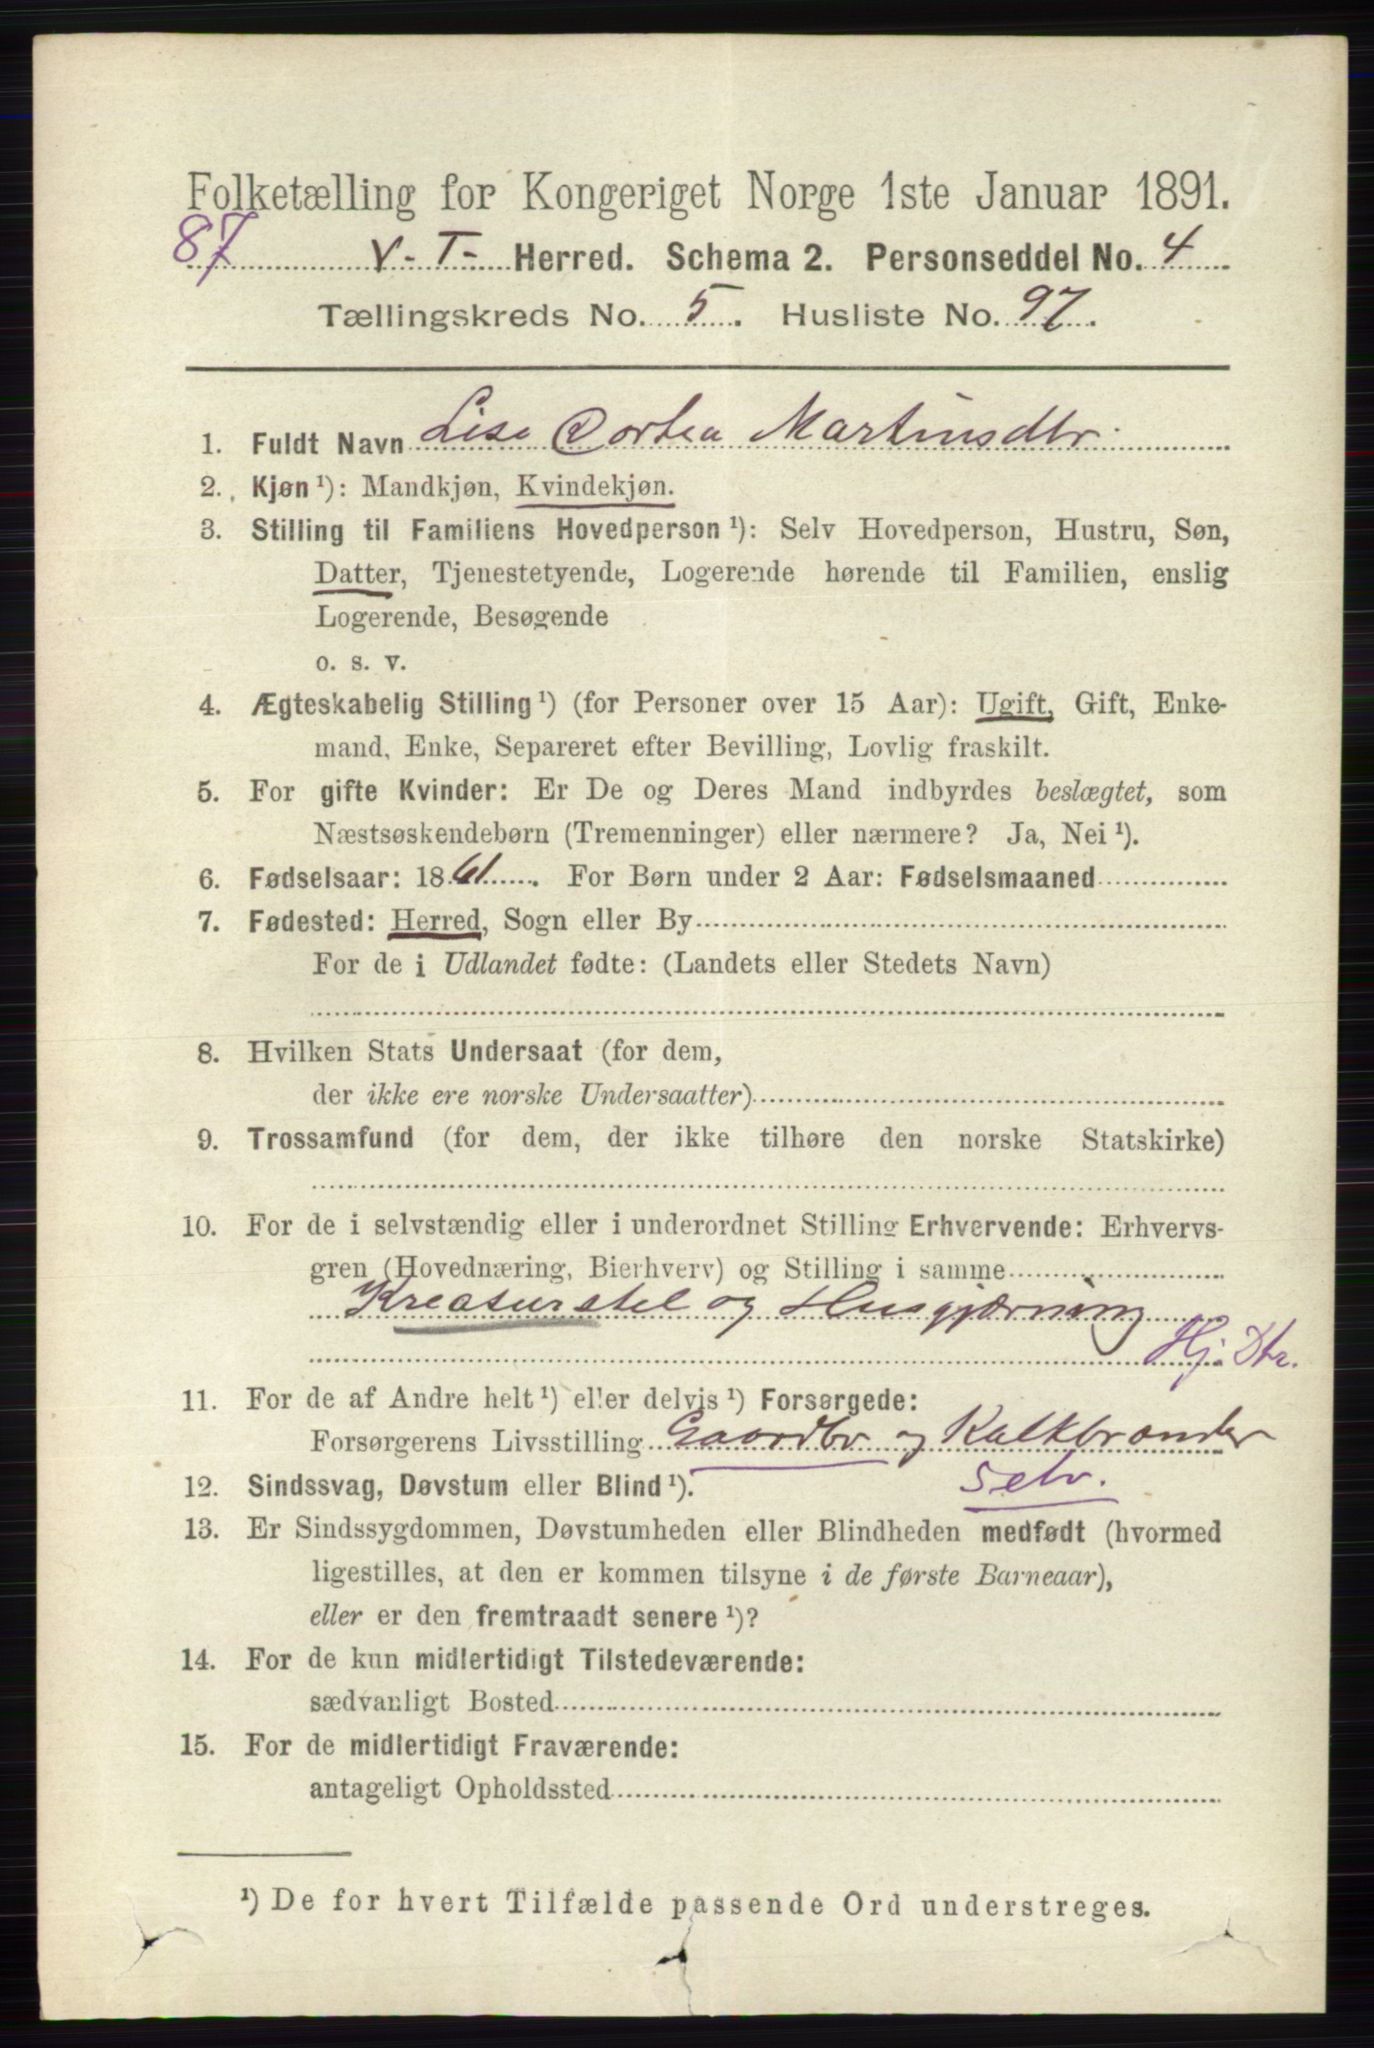 Folketælling for Kongeriget Norge 1ste Januar 1891.
87 V.-T- Herred. Schema 2. Personseddel No. 4
Tællingskreds No. 5. Husliste No. 97.
1. Fuldt Navn Lise Dortea Martinsdtr.
2. Kjøn ¹): Mandkjøn, Kvindekjøn.
3. Stilling til Familiens Hovedperson ¹): Selv Hovedperson, Hustru, Søn,
Datter, Tjenestetyende, Logerende hørende til Familien, enslig
Logerende, Besøgende
o. s. v.
4. Ægteskabelig Stilling ¹) (for Personer over 15 Aar): Ugift, Gift, Enke-
mand, Enke, Separeret efter Bevilling, Lovlig fraskilt.
5. For gifte Kvinder: Er De og Deres Mand indbyrdes beslægtet, som
Næstsøskendebørn (Tremenninger) eller nærmere? Ja, Nei ¹).
6. Fødselsaar: 1861. For Børn under 2 Aar: Fødselsmaaned
7. Fødested: Herred, Sogn eller By
For de i Udlandet fødte: (Landets eller Stedets Navn)
8. Hvilken Stats Undersaat (for dem,
der ikke ere norske Undersaatter)
9. Trossamfund (for dem, der ikke tilhøre den norske Statskirke)
10. For de i selvstændig eller i underordnet Stilling Erhvervende: Erhvervs-
gren (Hovednæring, Bierhverv) og Stilling i samme
Kreaturstel og Husgjærning
Hj. Dtr.
11. For de af Andre helt ¹) eller delvis ¹) Forsørgede:
Forsørgerens Livsstilling Gaardbr og Kalkbrænder
Selv.
12. Sindssvag, Døvstum eller Blind ¹).
13. Er Sindssygdommen, Døvstumheden eller Blindheden medfødt (hvormed
ligestilles, at den er kommen tilsyne i de første Barneaar),
eller er den fremtraadt senere ¹)?
14. For de kun midlertidigt Tilstedeværende:
sædvanligt Bosted
15. For de midlertidigt Fraværende:
antageligt Opholdssted
¹) De for hvert Tilfælde passende Ord understreges.